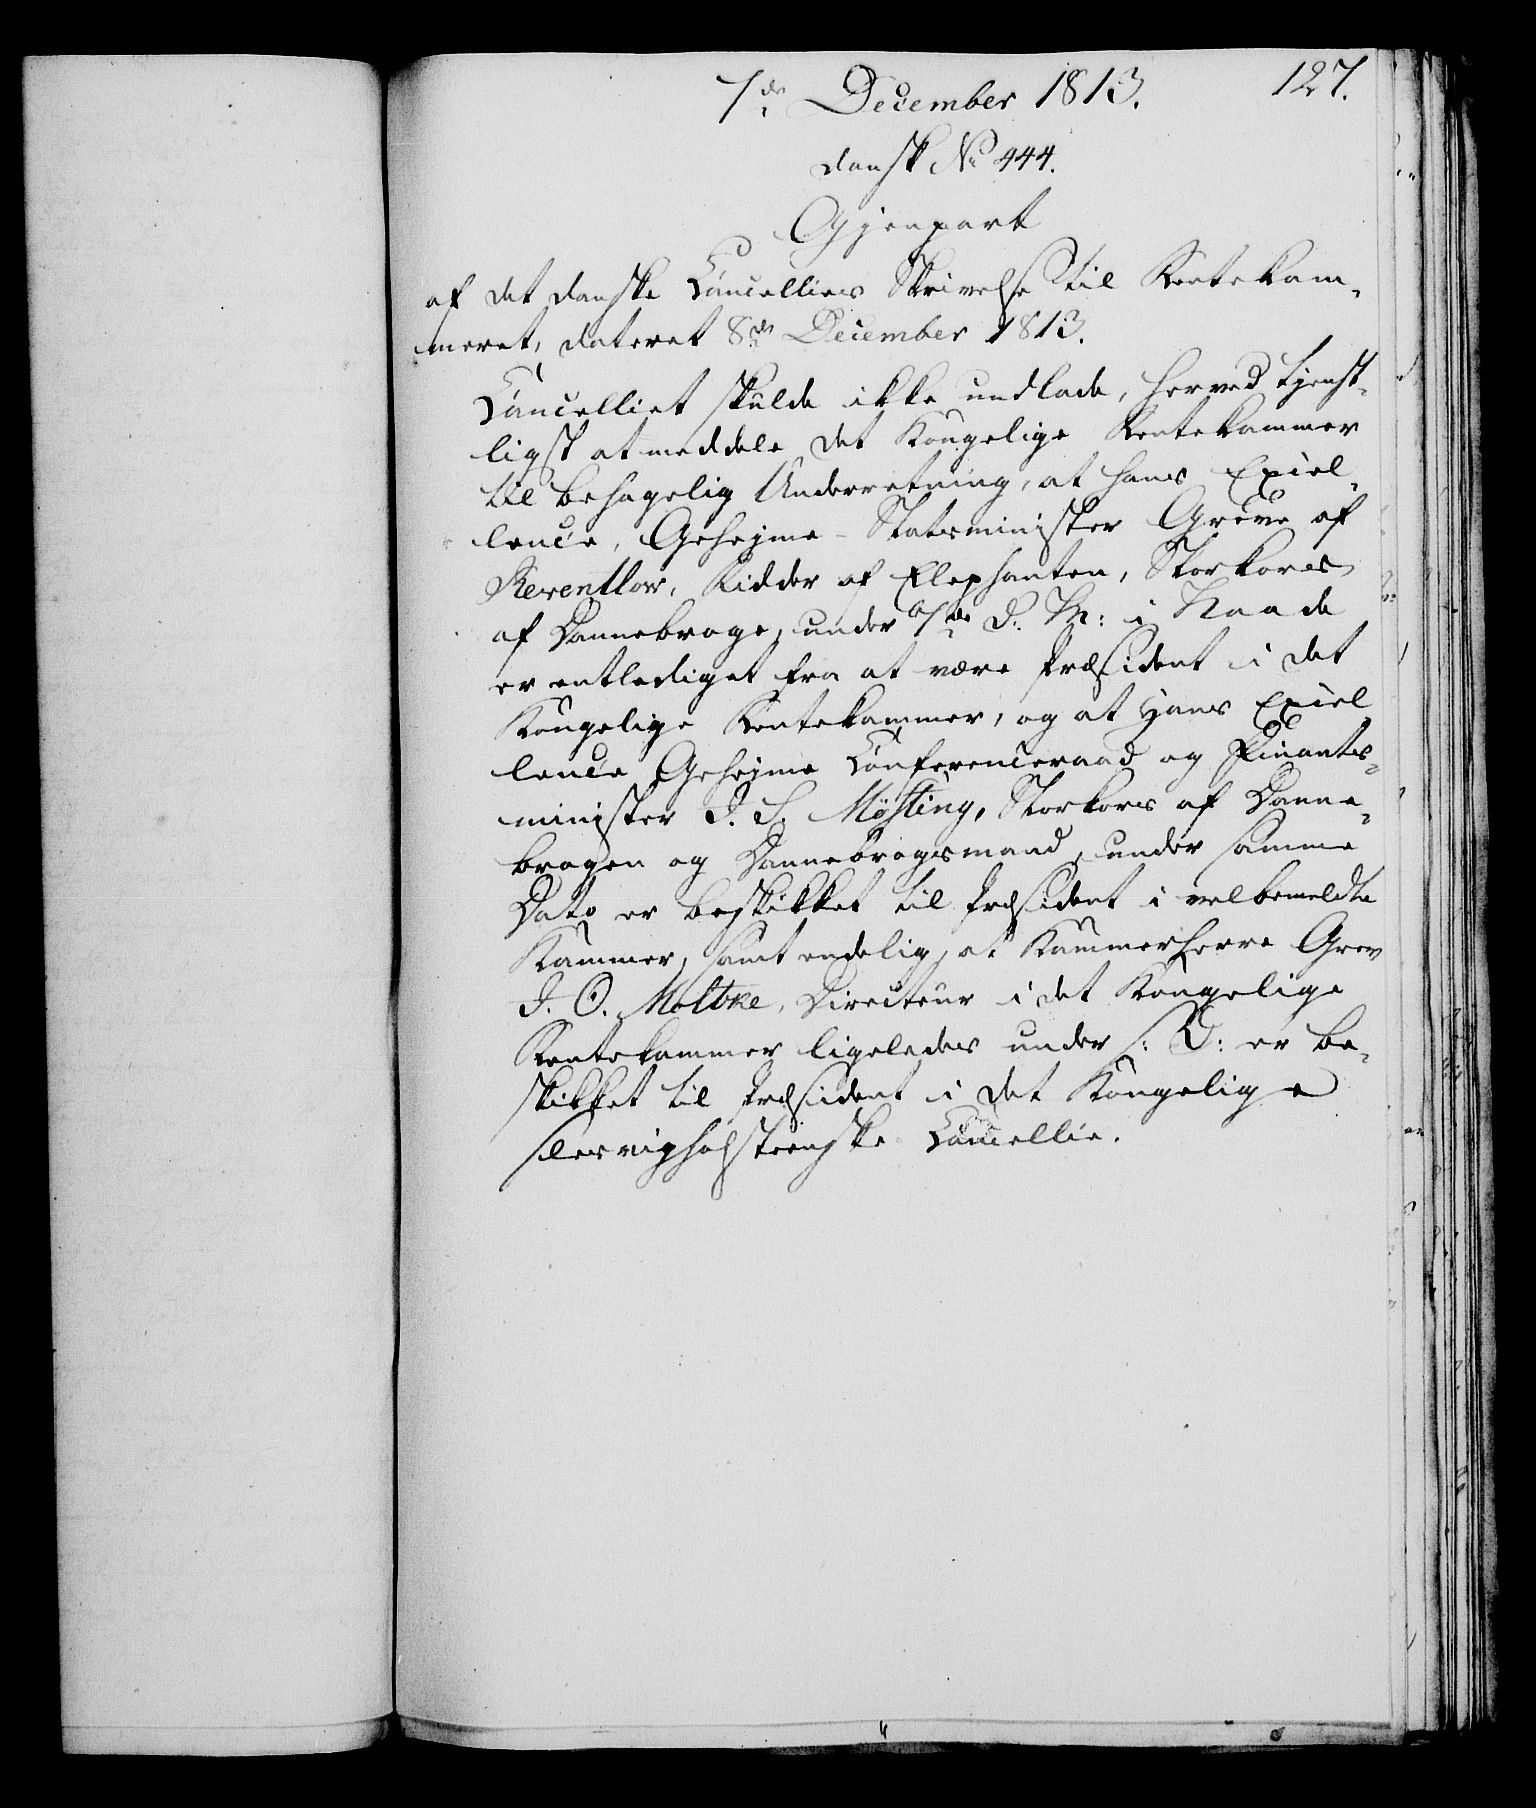 7de December 1813. 127.
dansk No 444.
Gjenpart
af det danske Cancellies Skrivelse til Rentekam-
meret, dateret 8de December 1813.
Cancelliet skulde ikke undlade, herved tjenst-
ligst at meddele det Kongelige Rentekammer
til behagelig Underretning, at hans Excel-
lence, Geheime-Statsminister Greve af
Reventlow, Ridder af Elephanten, Storkors
af Dannebroge, under 7de d. M: i Naade
er entlediget fra at være Præsident i det
Kongelige Rentekammer, og at Hans Excel
lence Geheime Conferenceraad og Finants-
minister J. S. Møsting, Storkors af Danne-
brogen og Dannebrogsmand, under samme
Dato er beskikket til Præsident i velbemeldte
Kammer, samt endelig, at Kammerherre Grev
J. O. Moltke, Directeur i det Kongelige
Rentekammer ligeledes under s: D: er be-
skikket til Præsident i det Kongelige
slesvigholsteenske Cancellie.